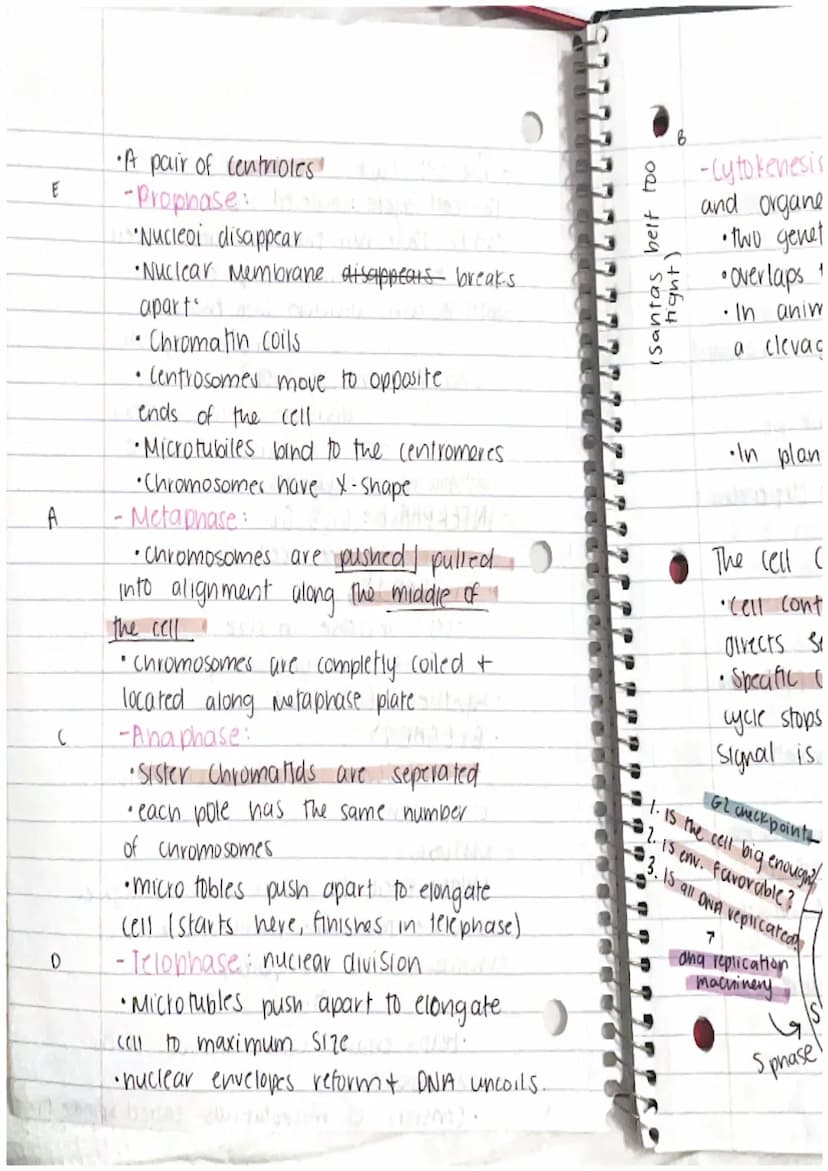 •A pair of centrioles
E
-Prophase:
•Nucleoi disappear
•Nuclear Membrane disappears breaks
apart
• Chromatin coils
• Centrosomes move to opposite
ends of the cell
•Microtubiles bind to the centromeres
•Chromosomes have X-shape
A
- Metaphase:
•chromosomes are pushed/pulled
into alignment along the middle of
the cell
•chromosomes are completly coiled +
located along metaphase plate
C
-Anaphase:
•sister chromatids are seperated
•each pole has the same number
of chromosomes
•micro tobles push apart to elongate
cell (starts here, finishes in telephase)
D
-Telophase: nuclear division
•Microtubles push apart to elongate
cell to maximum size
•nuclear envelopes reform + DNA uncoils.
B
(santas belt too
tight)
-Cytokenesis
and organe
•two genet
•overlaps
•In anim
a clevag
•In plan
The cell C
•Cell cont
directs se
•Specific c
cycle stops
signal is
G2 checkpoint
1. Is the cell big enough?
2. Is env. favorable?
3. Is all DNA replicated?
dna replication
machinery
S phase
S